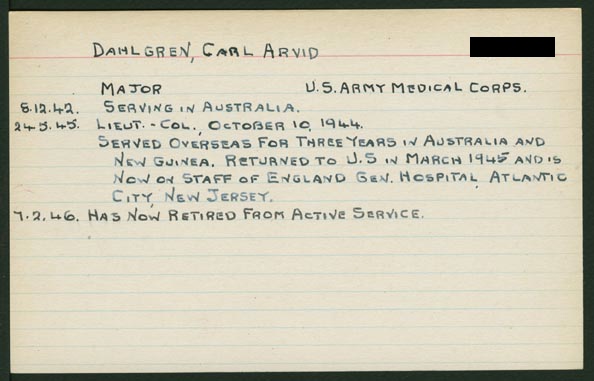 DAHLGREN, CARL ARVID
MAJOR U.S. ARMY MEDICAL CORPS.
8.12.42. SERVING IN AUSTRALIA.
24.5.45. LIEUT.-COL., OCTOBER 10, 1944.
SERVED OVERSEAS FOR THREE YEARS IN AUSTRALIA AND
NEW GUINEA. RETURNED TO U.S IN MARCH 1945 AND IS
NOW ON STAFF OF ENGLAND GEN. HOSPITAL, ATLANTIC
CITY, NEW JERSEY.
7.2.46. HAS NOW RETIRED FROM ACTIVE SERVICE.